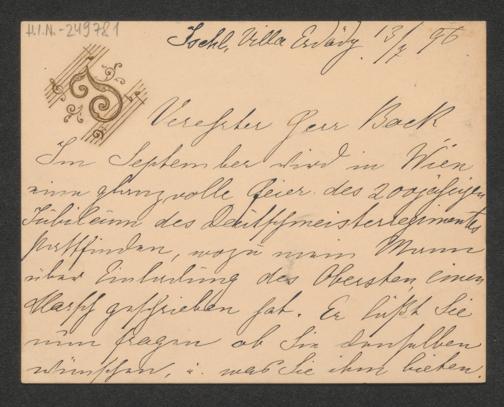 H.I.N.-249781
Ischl, Villa Erdödy 13/7 96
Verehrter Herr Bock,
Im September wird in Wien
eine glanzvolle Feier des 200jährigen
Jubiläum des Deutschmeisterregimentes
stattfinden, wozu mein Mann
über Einladung des Obersten, einen
Marsch geschrieben hat. Er läßt Sie
nun fragen ob Sie denselben
wünschen, u. was Sie ihm bieten.